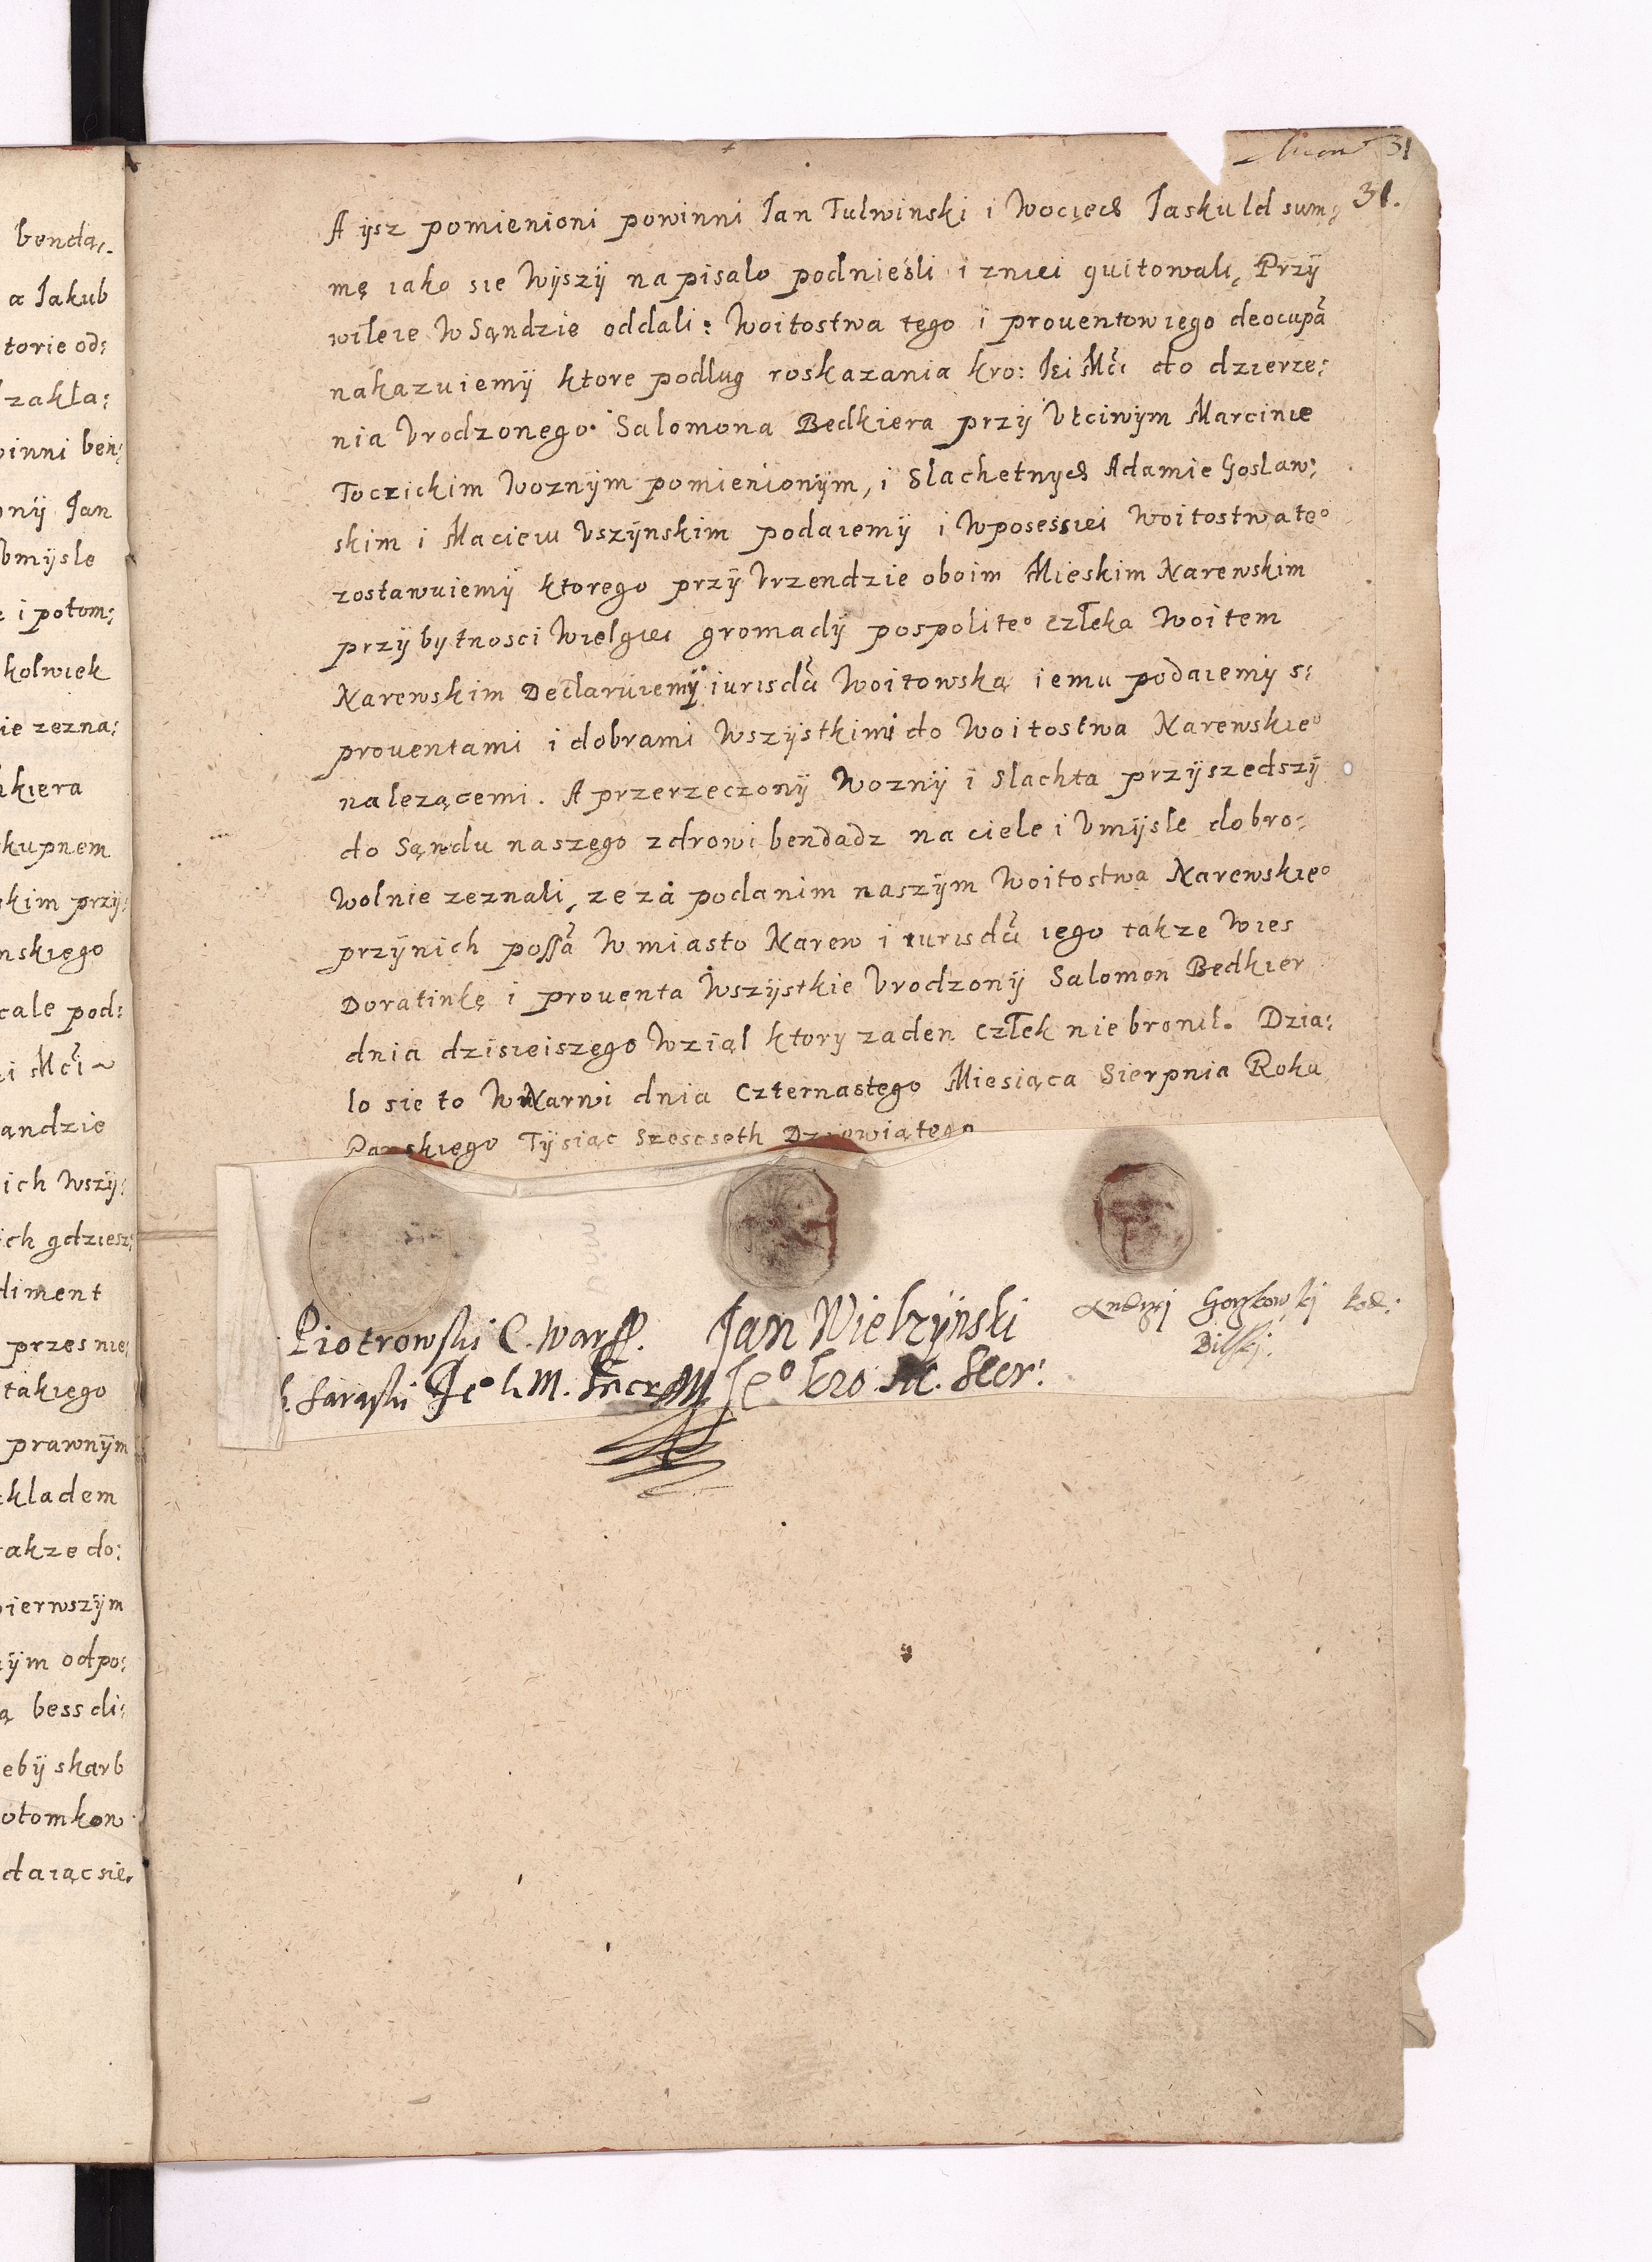 benda,.
a Iakub
torie od:
zakla:
winni ben:
ony Ian
Vmysle
i potom:
kolwiek
ie zezna:
kiera
kupnem
skim przÿ:
nskięgo
cale pod:
i Mci
andzie
ich Wszÿ:
ich gdziesz:
diment
przes nie:
takięgo
prawnÿm
kladem
akze do:
pierwszÿm
ÿm odpo:
ą bess di:
ebÿ skarb
otomkow
daiąc sie.
31
31.
A ÿsz pomienioni powinni Ian Tulwinski i Wociech Iaskuld sum:
mę iako sie Wÿszÿ napisalo podnieśli i zniei quitowali, Przÿ
wileie W Sąndzie oddali: Woitostwa tęgo i prouentow ięgo deocupa
nakazuiemÿ ktore podlug roskazania kro: Iei Mci do dzierze:
nia Vrodzonego Salomona Bedkiera przÿ Vtciwÿm Marcinie
Toczickim Woznÿm pomienionÿm, i Slachetnych Adamie Goslaw:
skim i Macieiu Vszÿnskim podaiemÿ i Wposessiei Woitostwa teo
zostawuiemÿ ktorego przÿ Vrzendzie oboim Mieskim Narewskim
przÿ bytnosci Wielgiei gromadÿ pospoliteo człeka Woitem
Narewskim Declaruiemÿ iurisdu Woitowską iemu podaiemÿ s:
prouentami i dobrami Wszÿstkimi do Woitostwa Narewskieo
nalezącemi. A przerzeczonÿ Woznÿ i Slachta przÿszedszÿ
do Sąndu naszego zdrowi bendadz na ciele i Vmÿsle dobro:
Wolnie zeznali, ze za podanim naszÿm Woitostwa Narewskięo
przÿnich possa W miasto Narew i iurisdu iego takze Wies
Doratinkę i prouenta Wszÿstkie Vrodzonÿ Salomon Bedkier
dnia dzisieiszego Wziąl ktory zaden człek nie bronil. Dzia:
lo sie to W Narwi dnia Czternastego Miesiąca Sierpnia Roku
Panskięgo Tÿsiąc Szescseth Dziewiątego
Piotrowski C. Warss. Jan Wielzÿnski
Jeo k M. Jeo kro M. Secr:
Andrzej Gorskowskj
Bilskj.